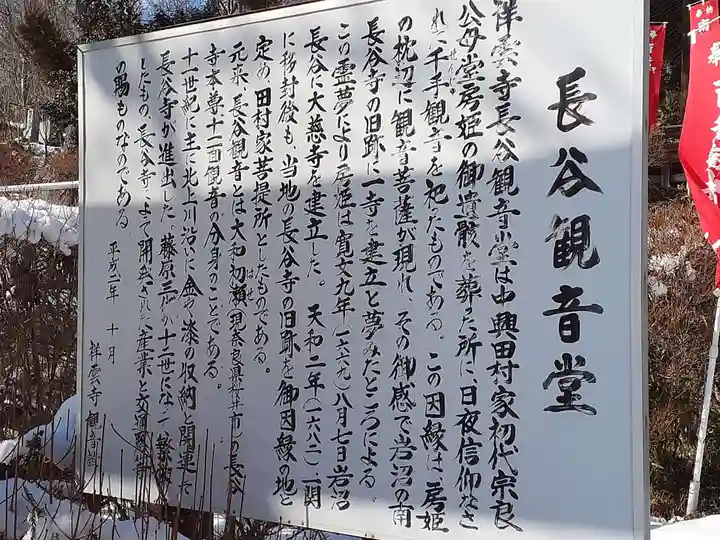 長谷観音堂
祥雲寺長谷観音堂は中興田村家初代宗良
公母堂房姫の御遺骸を葬った所に、日夜信仰なさ
れた千手観音を祀ったものである。この因縁は、房姫
の枕辺に観音菩薩が現れ、その御感で岩沼の南
長谷寺の旧跡に一寺を建立と夢みたところによる。
この霊夢により房姫は寛文九年(一六六九)八月七日岩沼
長谷に大慈寺を建立した。天和二年(一六八二)一関
に移封後も、当地の長谷寺の旧跡を御因縁の地と
定め、田村家菩提所としたものである。
元来、長谷観音とは大和初瀬(現奈良県桜井市)の長谷
はせ
寺本尊十一面観音の分身のことである。
十一世紀に主に北上川沿いに金や漆の収納と関連した
長谷寺が進出した。藤原三代が十二世になって
したもの、長谷寺によって開発され産業と交通
の賜ものなのである。
平成二年 十月
祥雲寺観音
南